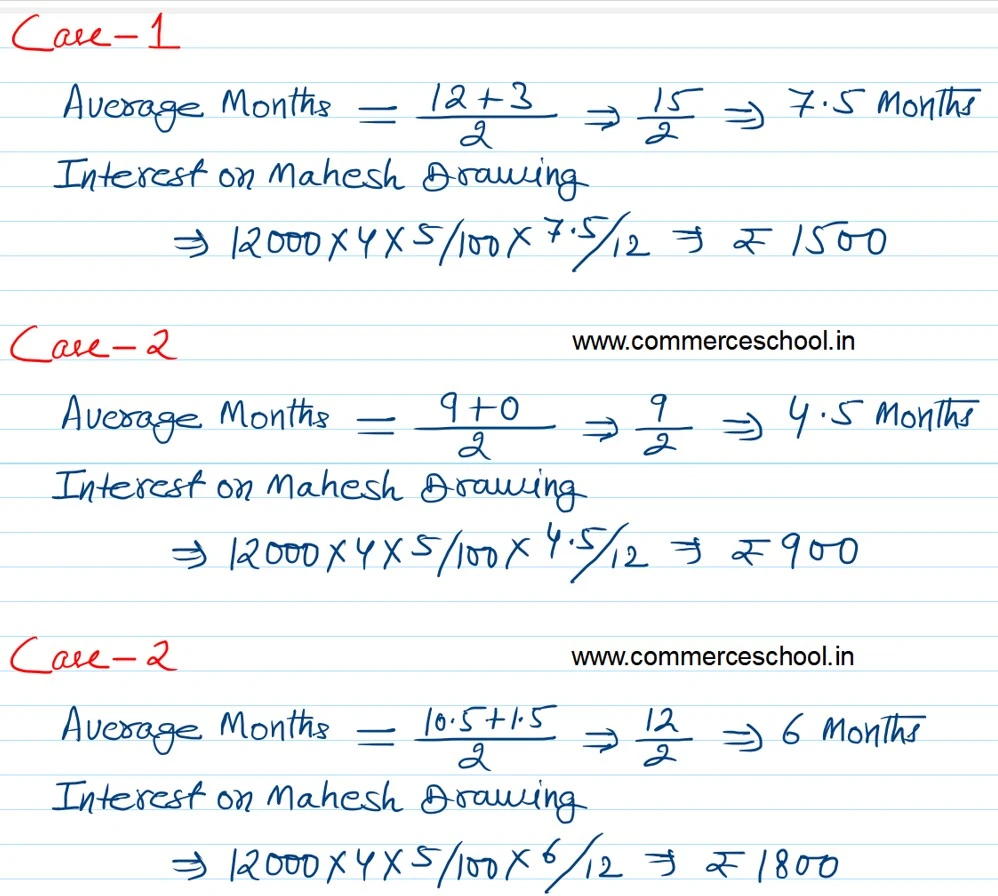 Case-1
Average Months = 12+3/2 ⇒ 15/2 ⇒ 7.5 Months
Interest on Mahesh Drawing
⇒ 12000 X 4 X 5/100 X 7.5/12 ⇒ ₹ 1500
Case-2
www.commerceschool.in
Average Months = 9+0/2 ⇒ 9/2 ⇒ 4.5 Months
Interest on Mahesh Drawing
⇒ 12000 X 4 X 5/100 X 4.5/12 ⇒ ₹ 900
Case-2
www.commerceschool.in
Average Months = 10.5+1.5/2 ⇒ 12/2 ⇒ 6 Months
Interest on Mahesh Drawing
⇒ 12000 X 4 X 5/100 X 6/12 ⇒ ₹ 1800